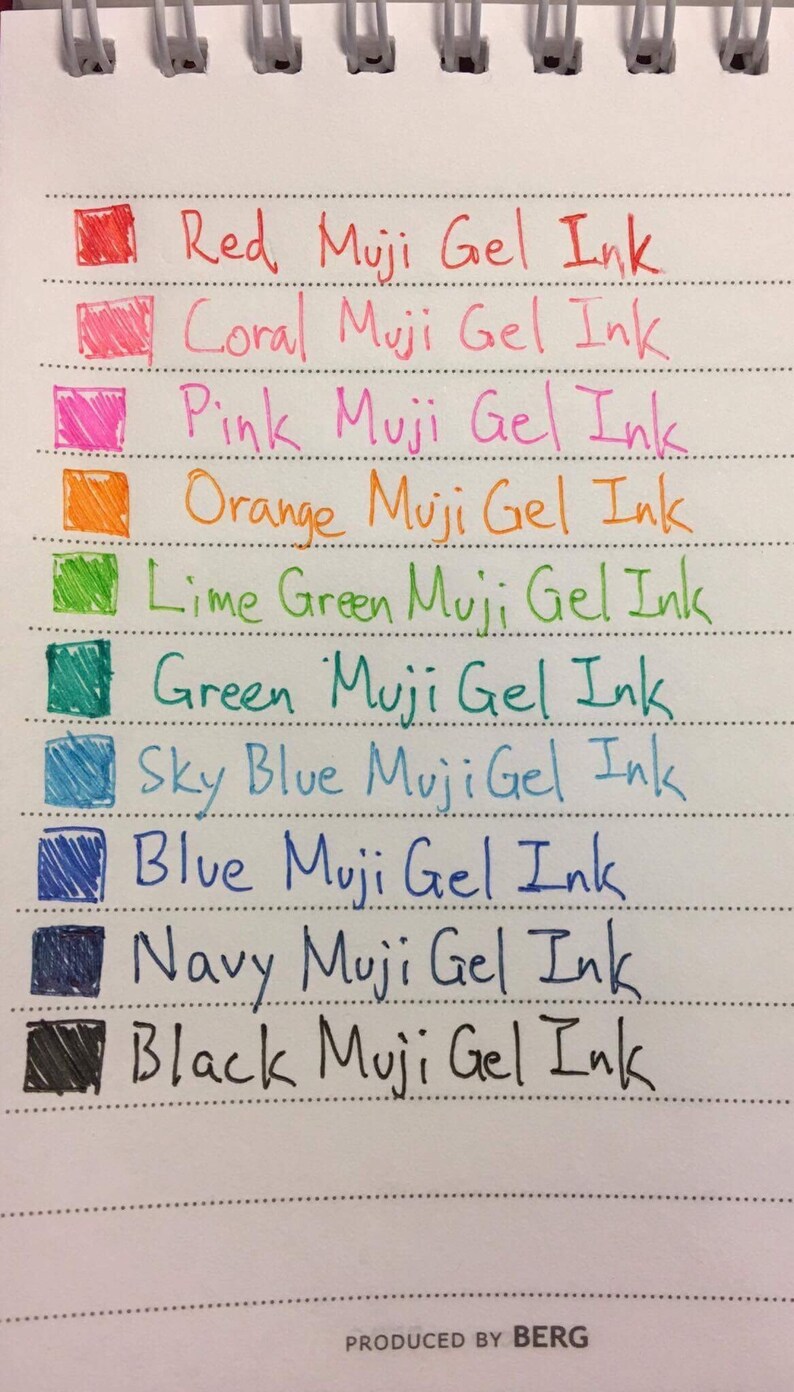 Red Muji Gel Ink
Coral Muji Gel Ink
Pink Muji Gel Ink
Orange Muji Gel Ink
Lime Green Muji Gel Ink
Green Muji Gel Ink
Sky Blue Muji Gel Ink
Blue Muji Gel Ink
Navy Muji Gel Ink
Black Muji Gel Ink
PRODUCED BY BERG